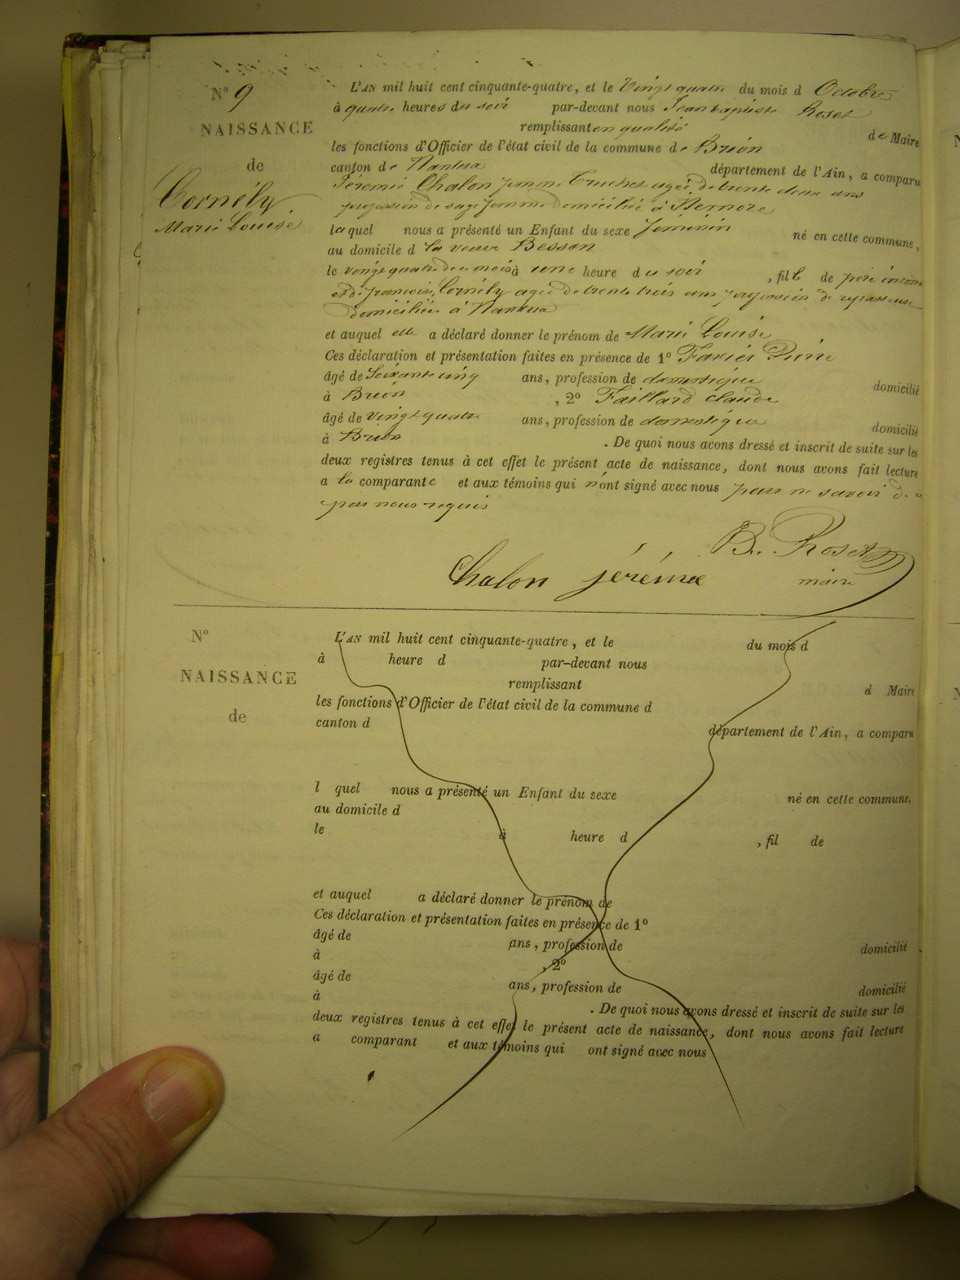 N° 9
NAISSANCE
de
Cornély
Marie Louise
L'AN mil huit cent cinquante-quatre, et le Vingt quatre du mois d Octobre
à quatre heures du soir par-devant nous Jean baptiste Roset
remplissant en qualité de Maire
les fonctions d'Officier de l'état civil de la commune de Brion
canton de Nantua département de l'Ain, a comparu
Jéremie Chalon femme agée de trente deux ans
profession de sage femme domiciliée à
laquel nous a présenté un Enfant du sexe féminin né en cette commune,
au domicile d la veuve Bessan
le vingt quatre du mois à une heure du soir , fill de père inconnu
et de françoise Cornély agée de trente trois ans profession de repasseuse
domiciliée à Nantua
et auquel elle a déclaré donner le prénom de Marie Louise
Ces déclaration et présentation faites en présence de 1°
âgé de Soixante cinq ans, profession de domestique domicilié
à Brion , 2° Faillard Claude
âgé de vingt quatre ans, profession de domestique domicilié
à Brion . De quoi nous avons dressé et inscrit de suite sur les
deux registres tenus à cet effet le présent acte de naissance, dont nous avons fait lecture
a la comparante et aux témoins qui n'ont signé avec nous pour ne savoir de ce
par nous requis
B. Roset
Chalon jérémie maire
N°
NAISSANCE
de
L'AN mil huit cent cinquante-quatre, et le du mois d
à heure d par-devant nous
remplissant d Maire
les fonctions d'Officier de l'état civil de la commune d
canton d département de l'Ain, a comparu
l quel nous a présenté un Enfant du sexe né en cette commune,
au domicile d
le à heure d , fil de
et auquel a déclaré donner le prénom de
Ces déclaration et présentation faites en présence de 1°
âgé de ans, profession de domicilié
à , 2°
âgé de ans, profession de domicilié
à . De quoi nous avons dressé et inscrit de suite sur les
deux registres tenus à cet effet le présent acte de naissance, dont nous avons fait lecture
a comparant et aux témoins qui ont signé avec nous